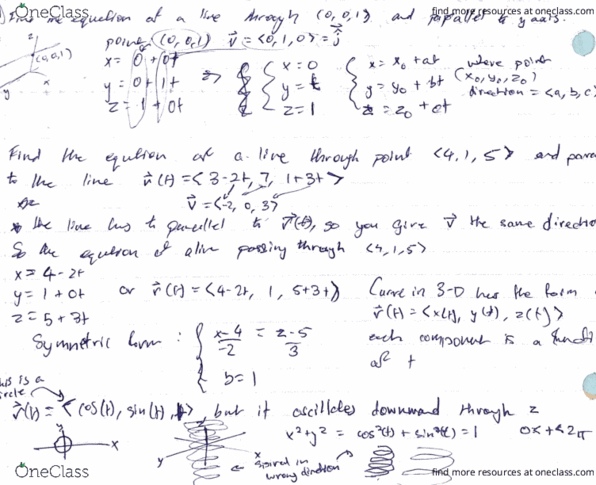 OneClass
find more resources at oneclass.com
Find the equation of a line through (0,0,1) and parallel to y axis.
point (0,0,1) v = <0,1,0> = j
x = 0 + 0t
y = 0 + 1t
z = 1 + 0t
=> { x = 0
y = t
z = 1
{ x = x0 + at
y = y0 + bt
z = z0 + ct
where point
(x0, y0, z0)
direction = <a, b, c>
z
(0,0,1)
x
y
Find the eqution of a line through point <4,1,5> and para
to the line r(t) = <3-2t, 7, 1+3t>
v = <-2, 0, 3>
* the line has to parallel to r(t), so you give v the same directio
So the equation of a line passing through <4,1,5>
x = 4 - 2t
y = 1 + 0t
z = 5 + 3t
or r(t) = <4-2t, 1, 5+3t>
Curve in 3-D has the form
r(t) = <x(t), y(t), z(t)>
each component is a functi
of t
Symmetric form : { x-4/-2 = z-5/3
b = 1
his is a
ircle
r(t) = <cos(t), sin(t), >, but it oscillates downward through z
x²+y² = cos²(t) + sin²(t) = 1 0≤t≤2π
y
x
z
x
y
← spired in
wrong direction
OneClass
find more resources at oneclass.com